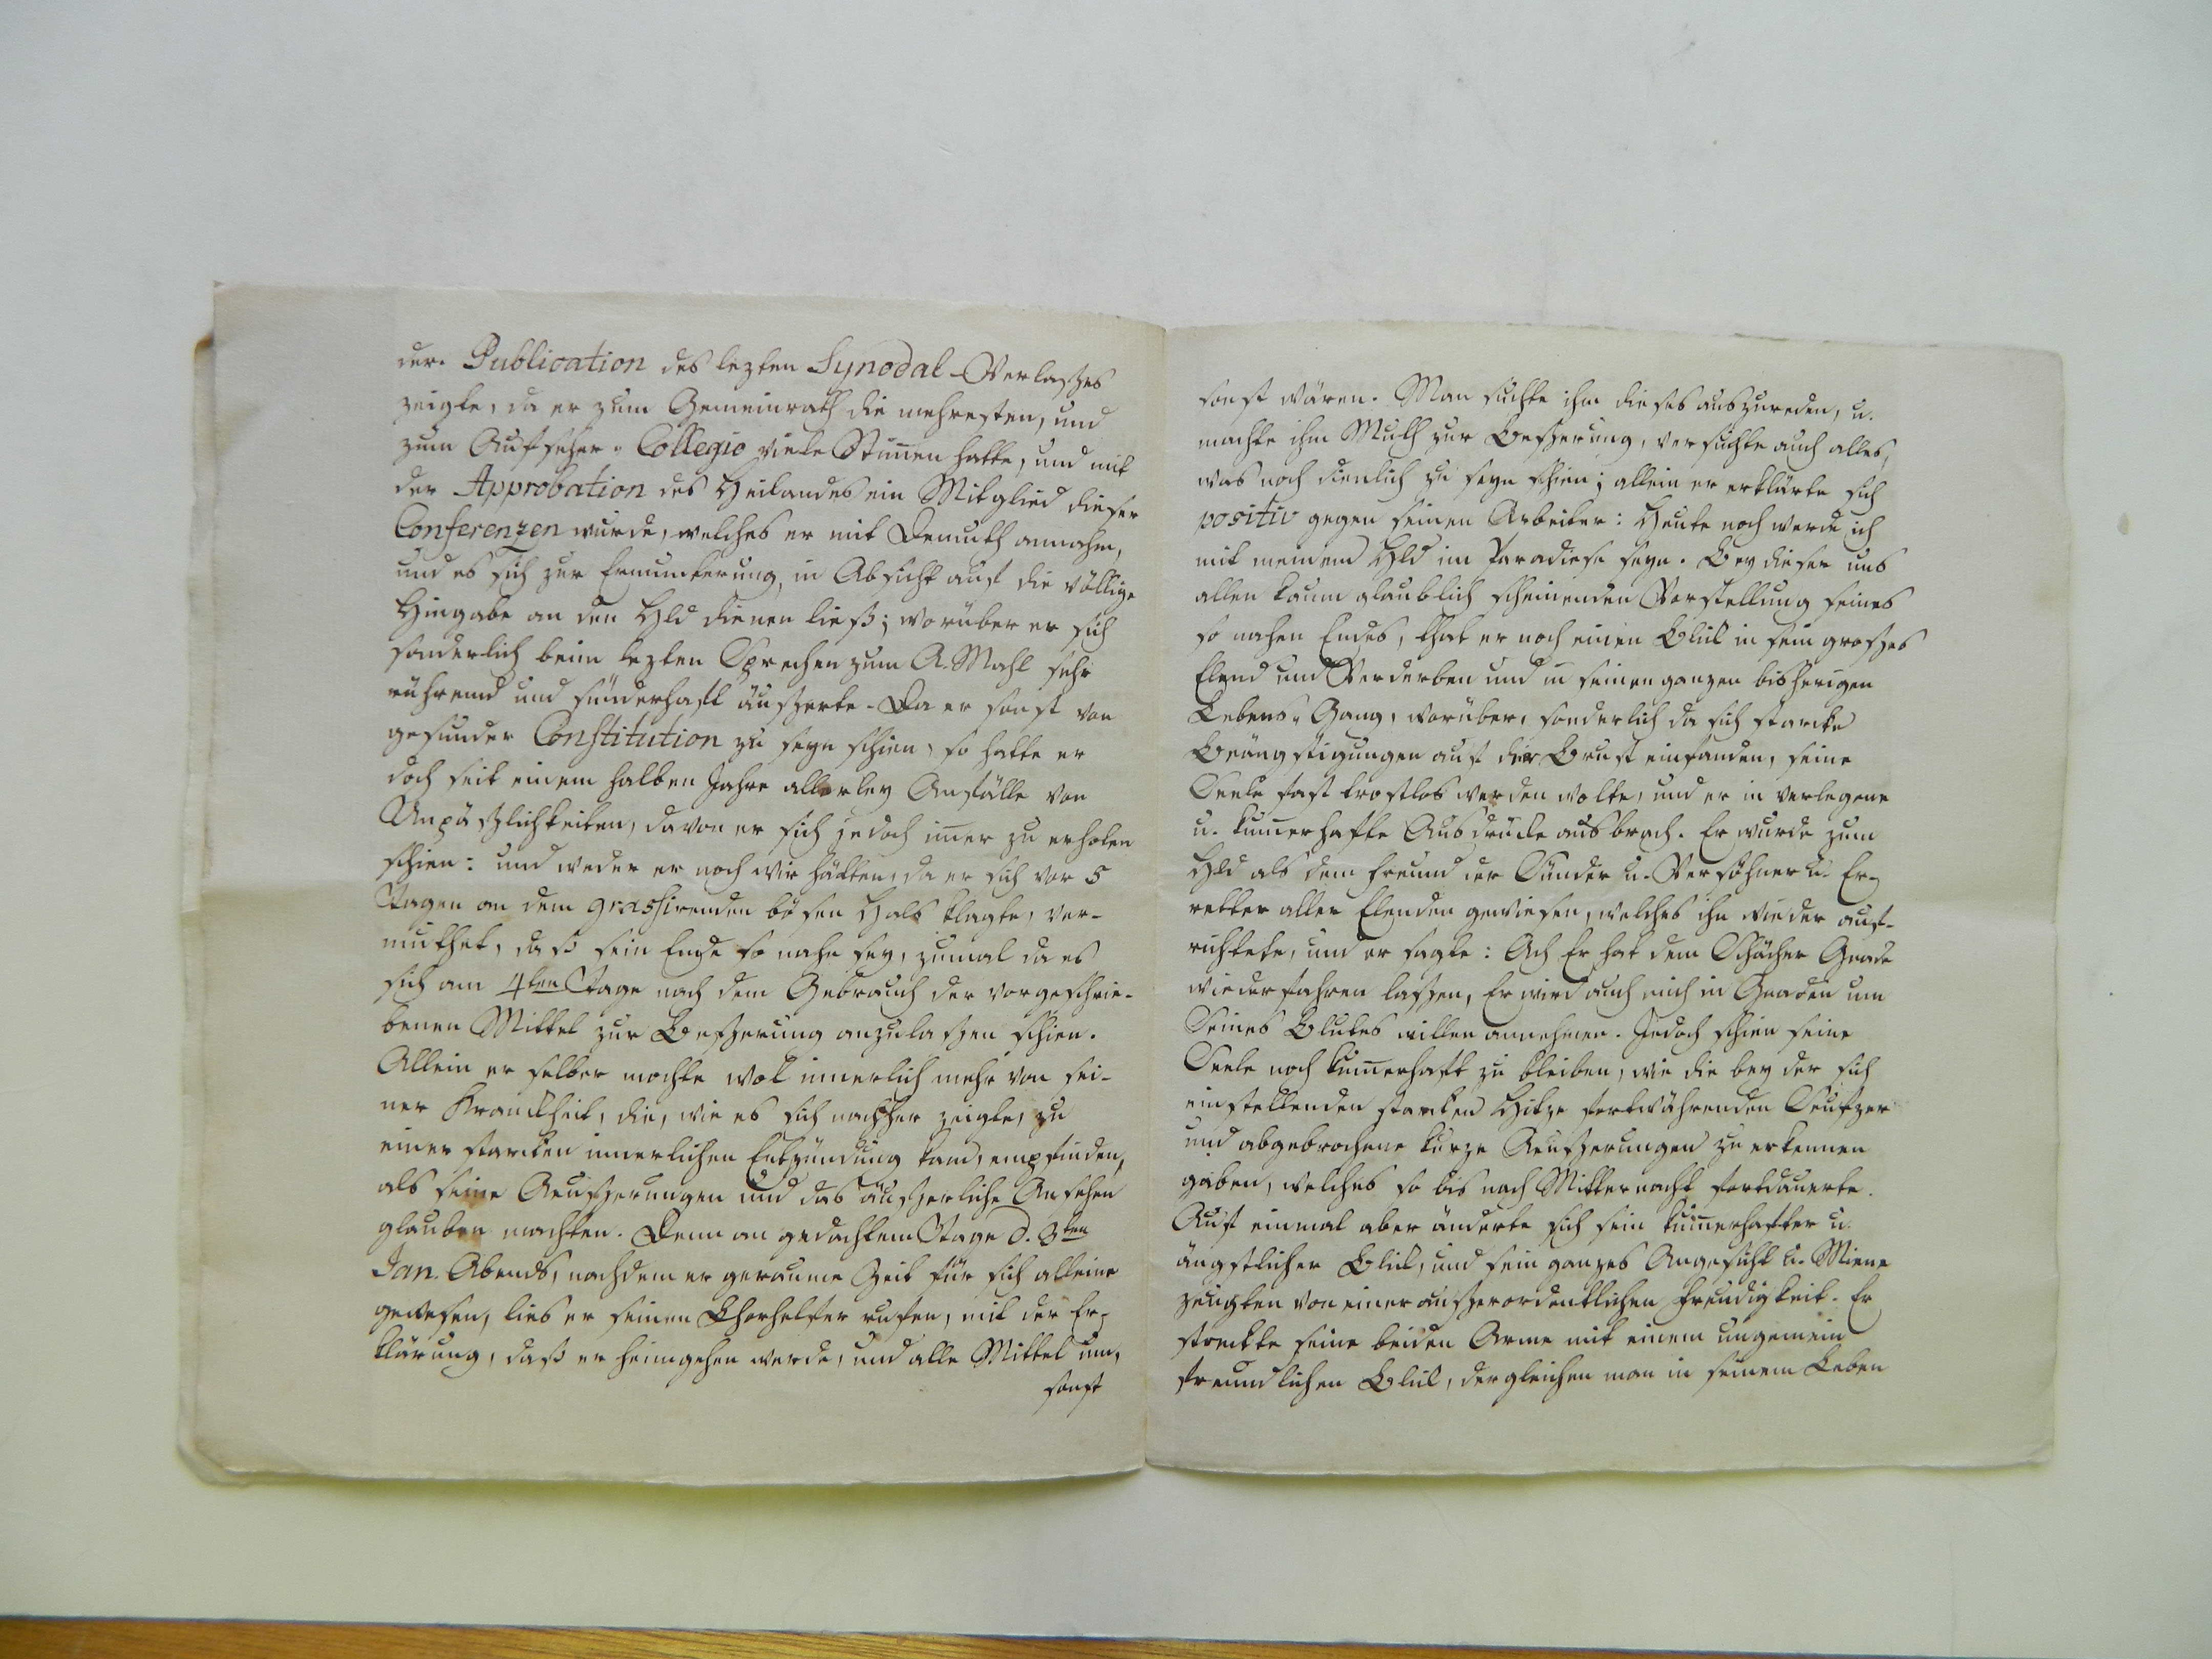 der Publication des lezten Synodal-Verlaßes
zeigte, da er zum Gemeinrath die mehresten, und
zum Aufseher-Collegio viele Stim̄en hatte, und mit
der Approbation des Heilandes ein Mitglied dieser
Conferenzen wurde, welches er mit Demuth annahm,
und es sich zur Ermunterung, in Absicht auf die völlige
Hingabe an den Hld dienen ließ; worüber er sich
sonderlich beim lezten Sprechen zum A. Mahl sehr
rührend und sünderhaft äußerte. Da er sonst von
gesunder Constitution zu seyn schien, so hatte er
doch seit einem halben Jahre allerley Anfälle von
Unpäßlichkeiten, davon er sich jedoch im̄er zu erholen
schien: und weder er noch wir hätten, da er sich vor 5
Tagen an dem grassirenden bösen Hals klagte, ver-
muthet, daß sein Ende so nahe sey, zumal da es
sich am 4ten Tage nach dem Gebrauch der vorgeschrie-
benen Mittel zur Beßerung anzulaßen schien.
Allein er selber mochte wol innerlich mehr von sei-
ner Kranckheit, die, wie es sich nachher zeigte, zu
einer starcken innerlichen Entzündung kam, empfinden,
als seine Aeußerungen und das äußerliche Ansehen
glauben machten. Denn an gedachtem Tage d. 3ten
Jan. Abends, nachdem er geraume Zeit für sich alleine
gewesen, lies er seinen Chorhelfer rufen, mit der Er-
klärung, daß er heimgehen werde, und alle Mittel um-
sonst
sonst wären. Man suchte ihm dieses auszureden, u.
machte ihm Muth zur Beßerung, versuchte auch alles,
was noch dienlich zu seyn schien; allein er erklärte sich
positiv gegen seinen Arbeiter: Heute noch werde ich
mit meinem Hld im Paradiese seyn. Bey dieser uns
allen kaum glaublich scheinenden Vorstellung seines
so nahen Endes, that er noch einen Blick in sein großes
Elend und Verderben und in seinen ganzen bisherigen
Lebens-Gang, worüber, sonderlich da sich starcke
Beängstigungen auf der Brust einfanden, seine
Seele fast trostlos werden wolte, und er in verlegene
u. kum̄erhafte Ausdrücke ausbrach. Er wurde zum
Hld als dem Freund der Sünder u. Versöhner u. Er-
retter aller Elenden gewiesen, welches ihn wieder auf-
richtete, und er sagte: Ach Er hat dem Schächer Gnade
wiederfahren laßen, Er wird auch mich in Gnaden um
Seines Blutes willen annehmen. Jedoch schien seine
Seele noch kum̄erhaft zu bleiben, wie die bey der sich
einstellenden starken Hitze fortwährenden Seufzer
und abgebrochene kurze Aeußerungen zu erkennen
gaben, welches so bis nach Mitternacht fortdauerte.
Auf einmal aber änderte sich sein kum̄erhafter u.
ängstlicher Blick, und sein ganzes Angesicht u. Miene
zeugten von einer außerordentlichen Freudigkeit. Er
streckte seine beiden Arme mit einem ungemein
freundlichen Blick, dergleichen man in seinem Leben